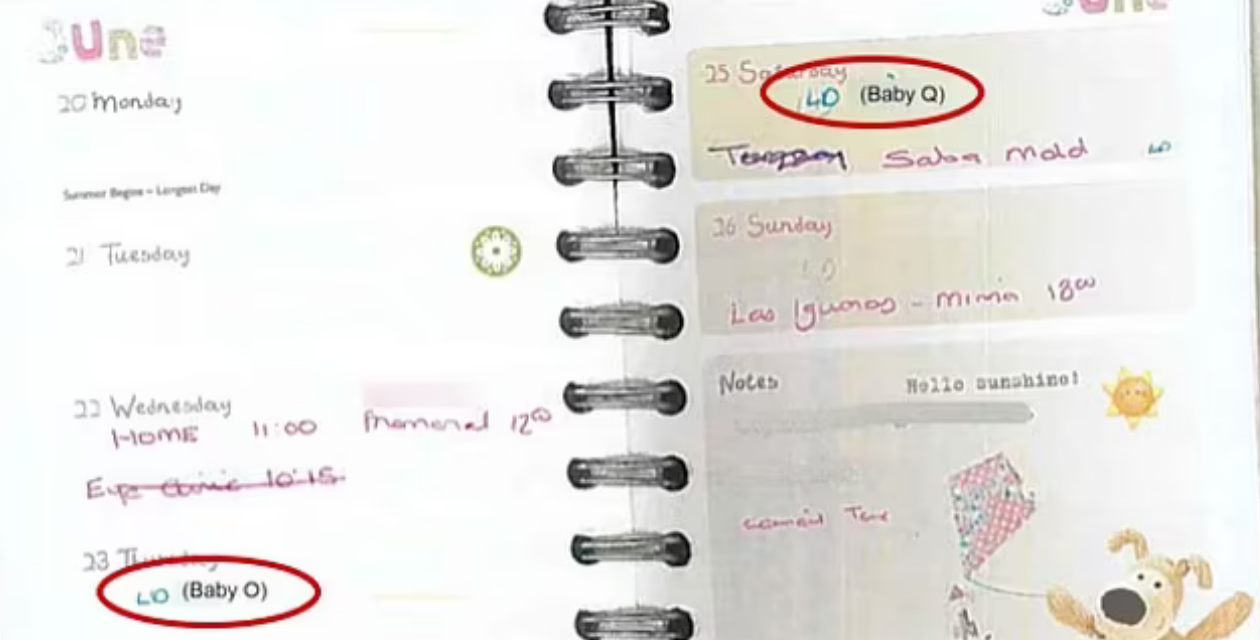 June
20 Monday
Summer Begins – Longest Day
21 Tuesday
22 Wednesday
HOME 11:00 Memorial 12⁰⁰
Eye Clinic 10:15
23 Thursday
LD (Baby O)
June
25 Saturday
LD (Baby Q)
Salsa LD
26 Sunday
LD
Las Iguanas - 18⁰⁰
Notes
Hello sunshine!